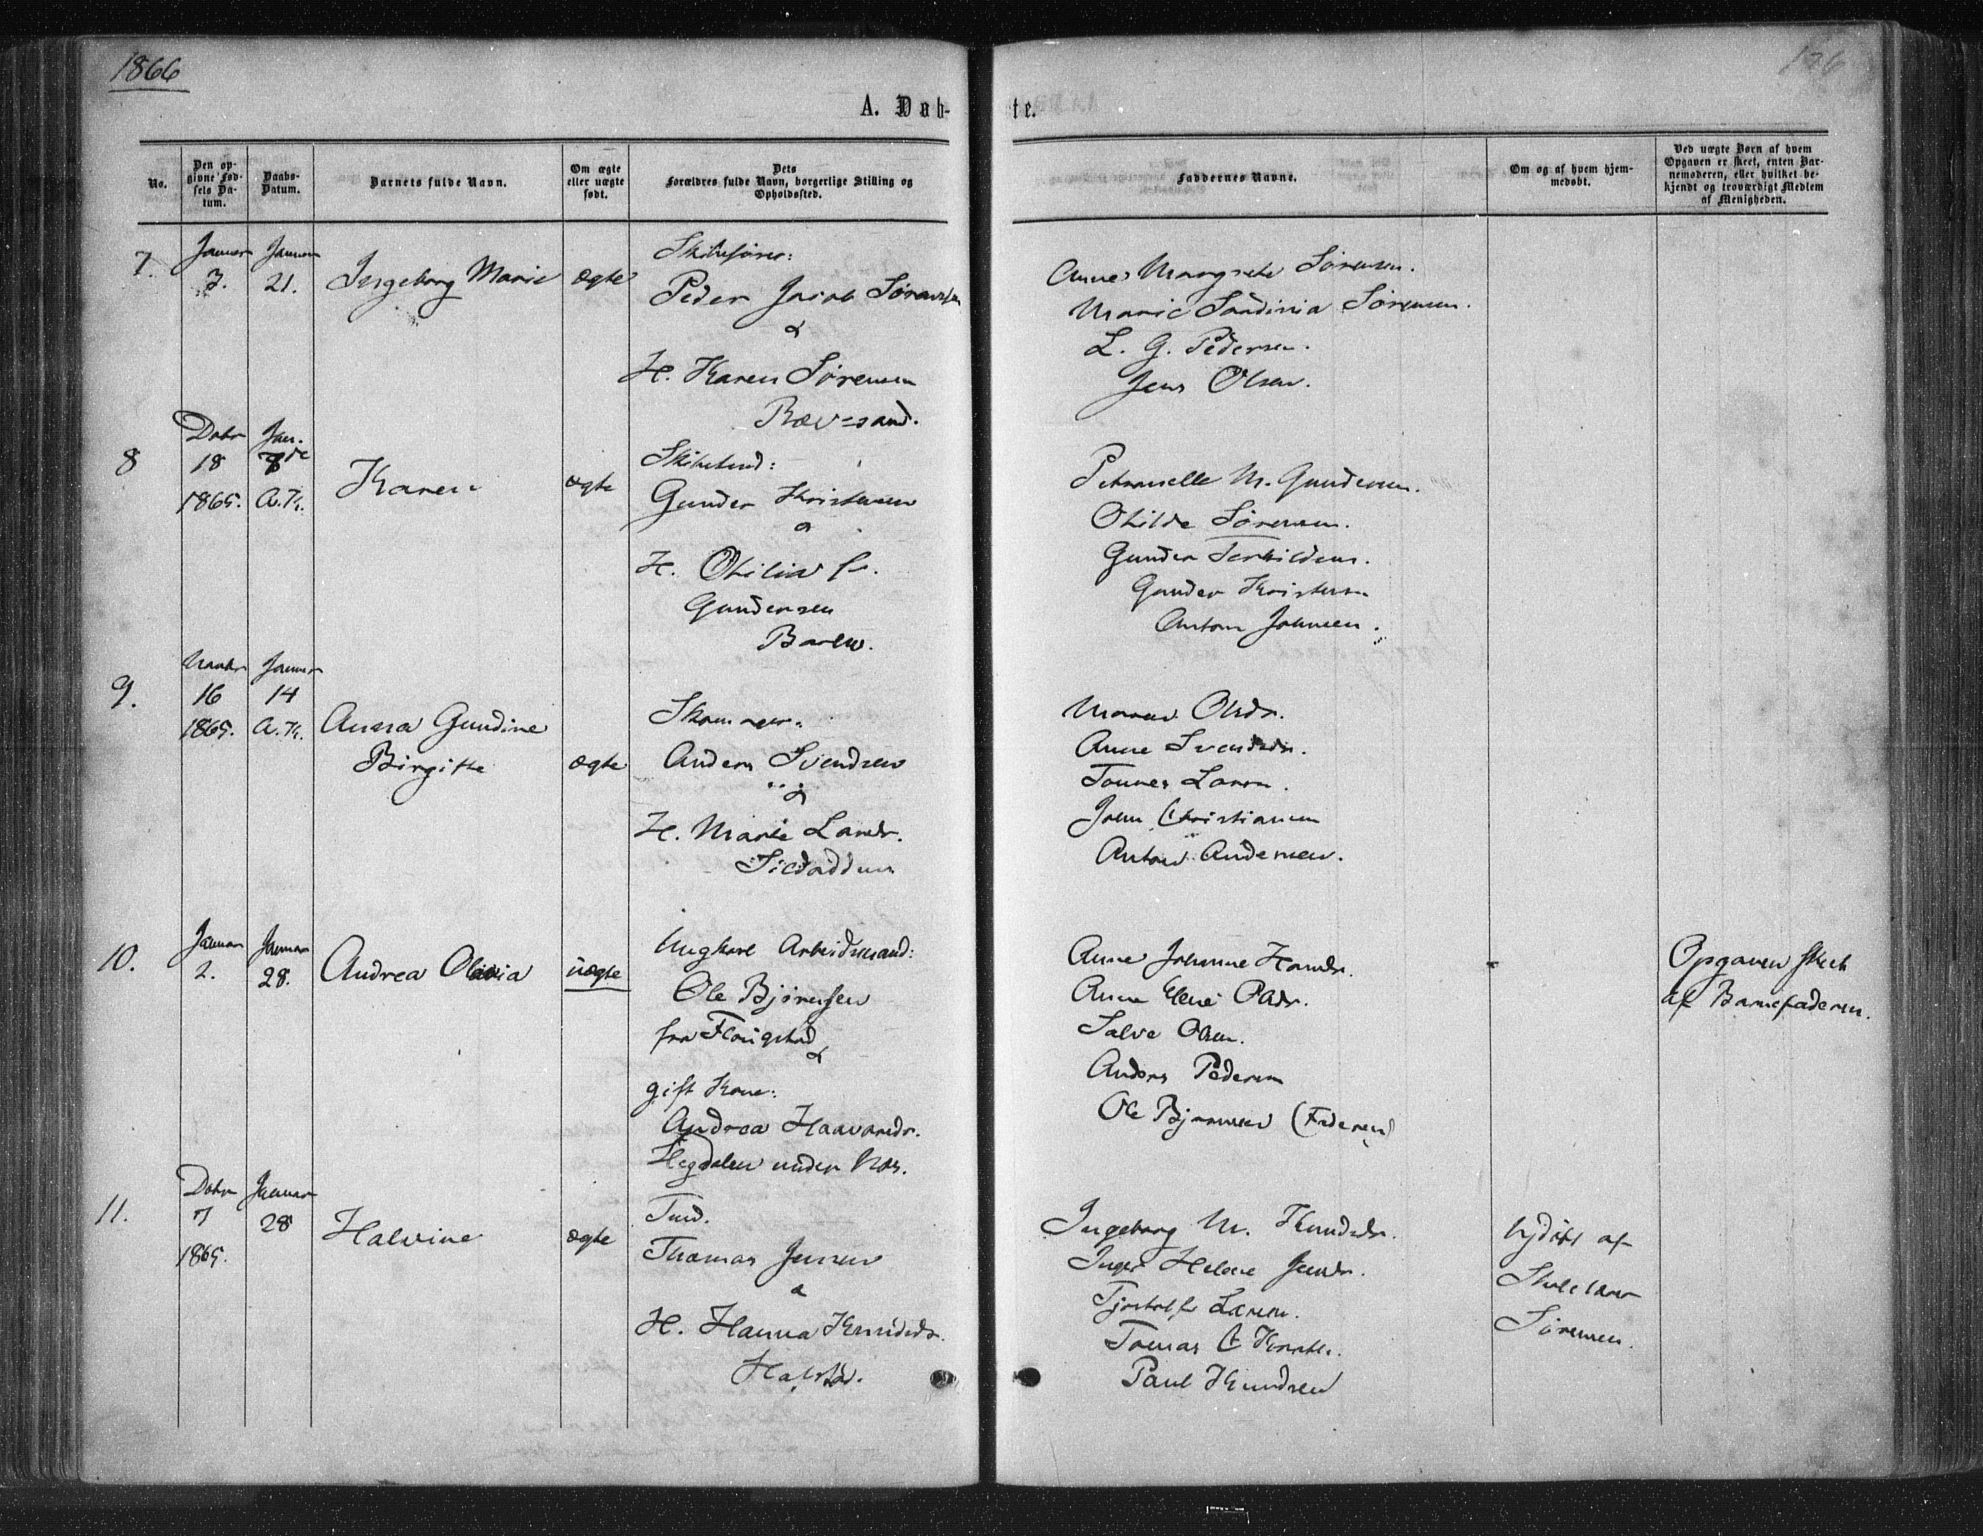 1866
126
A. Døb-
te.
No.
Den op-
givne Fød-
sels Da-
tum.
Daabs-
Datum.
Barnets fulde Navn.
Om ægte
eller uægte
født.
Dets
Forældres fulde Navn, borgerlige Stilling og
Opholdssted.
Faddernes Navne.
Om og af hvem hjem-
medøbt.
Ved uægte Børn af hvem
Opgaven er skeet, enten Bar-
nemoderen, eller hvilket be-
kjendt og troværdigt Medlem
af Menigheden.
7.
Januar
3.
Januar
21.
Ingeborg Marie
ægte
Skibsfører:
Peder Jacob Sørensen
&
H. Karen Sørensen
Rævesand.
Anne Margrete Sørensen.
Marie Sørensen.
L. G. Pedersen.
Jens Olsen.
8
Dcbr
18
1865.
Jan.
A. K.
Karen
ægte
Gunder Kristensen
&
H. Otilia
Gundersen
Petronelle M. Gundersen.
Otilde Sørensen.
Gunder Terkildsen.
Gunder Kristensen
Anton Johnsen.
9.
16
1865.
Januar
14
A. K.
Anna Gundine
Birgitte
ægte
Anders Svendsen
&
H. Marte Larsdr.
Maren Olsdr.
Anne Svendsdr.
Tønnes Larsen.
John Christiansen
Anton Andersen.
10.
Januar
2.
Januar
28.
Andrea Olavia
uægte
Ungkarl Arbeidsmand:
Ole Bjørnsen
fra Flougstad
&
gift Kone:
Andrea Haavorsdr.
Hegdalen under Næs.
Anne Johanne Hansdr.
Anne Elene Olsdr.
Salve Olsen.
Anders Pedersen
Ole Bjørnsen (Faderen)
Opgaven skeet
af Barnefaderen.
11.
Dcbr
7
1865.
Januar
28
Halvine
ægte
Thomas Jensen
&
H. Hanna Knudsdr.
Ingeborg M. Knudsdr.
Inger Helene Jensdr.
Tjøstolf Larsen.
Tomas
Paul Knudsen
hjdøbt af
Skolelærer
Sørensen.